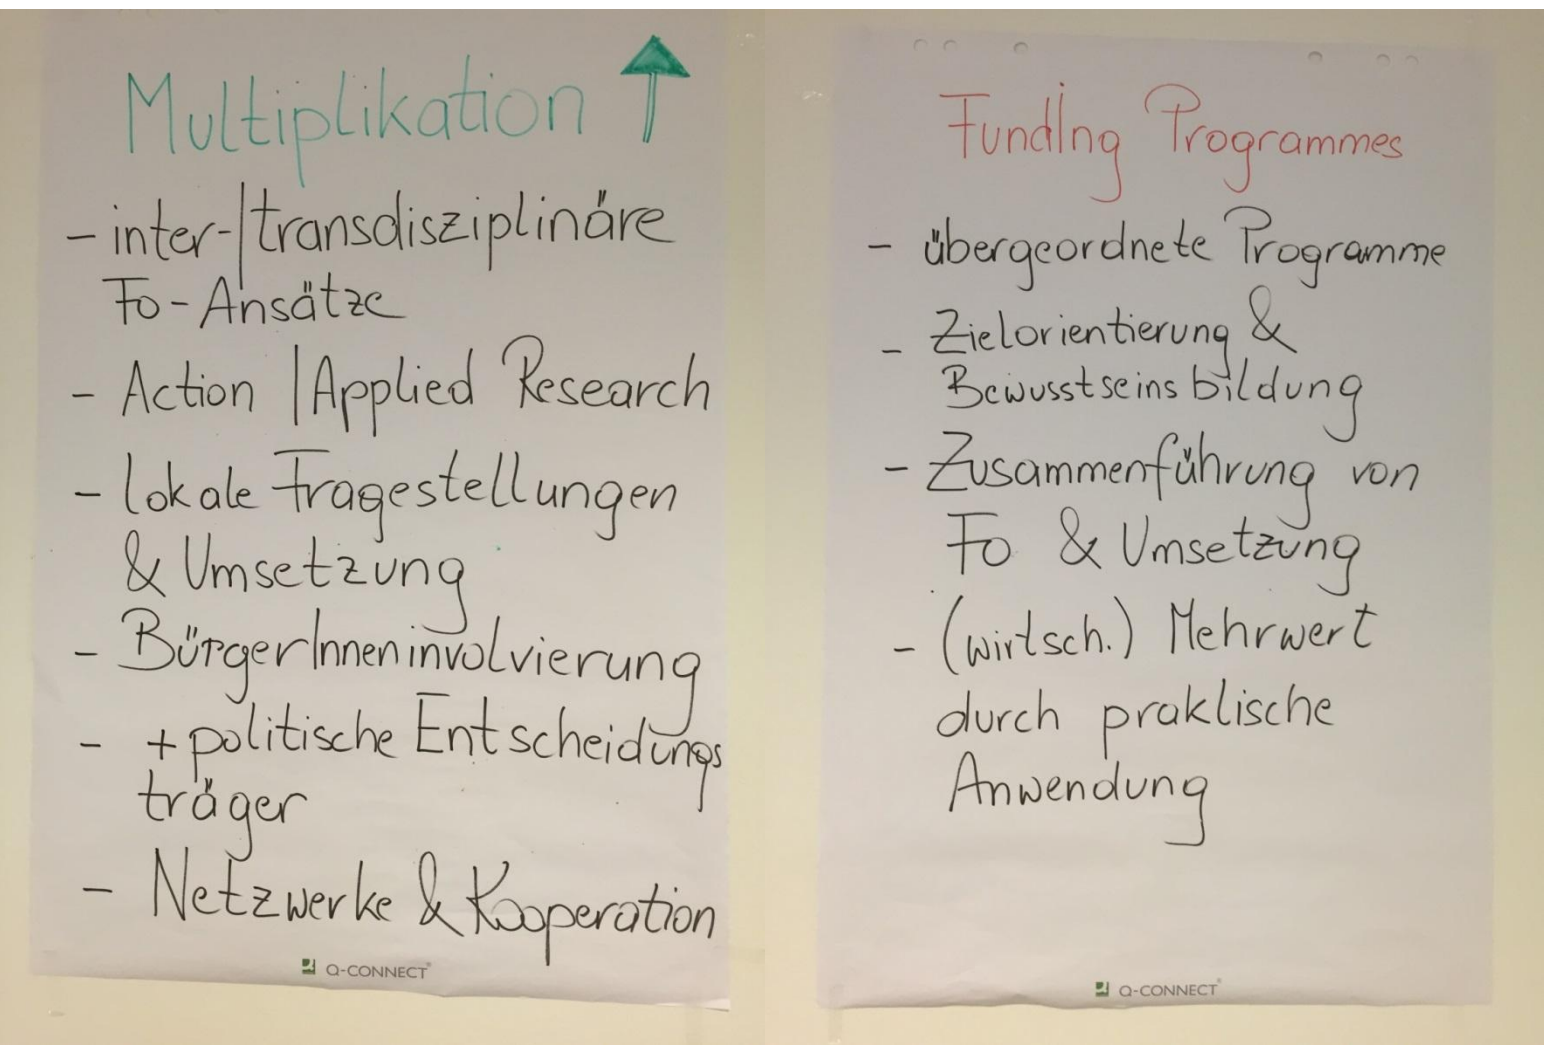 Multiplikation ↑
- inter-/transdisziplinäre
Fo-Ansätze
- Action / Applied Research
- lokale Fragestellungen
& Umsetzung
- BürgerInneninvolvierung
- + politische Entscheidungs
träger
- Netzwerke & Kooperation
Q-CONNECT®
Funding Programmes
- übergeordnete Programme
- Zielorientierung &
Bewusstseinsbildung
- Zusammenführung von
Fo & Umsetzung
- (wirtsch.) Mehrwert
durch praktische
Anwendung
Q-CONNECT®